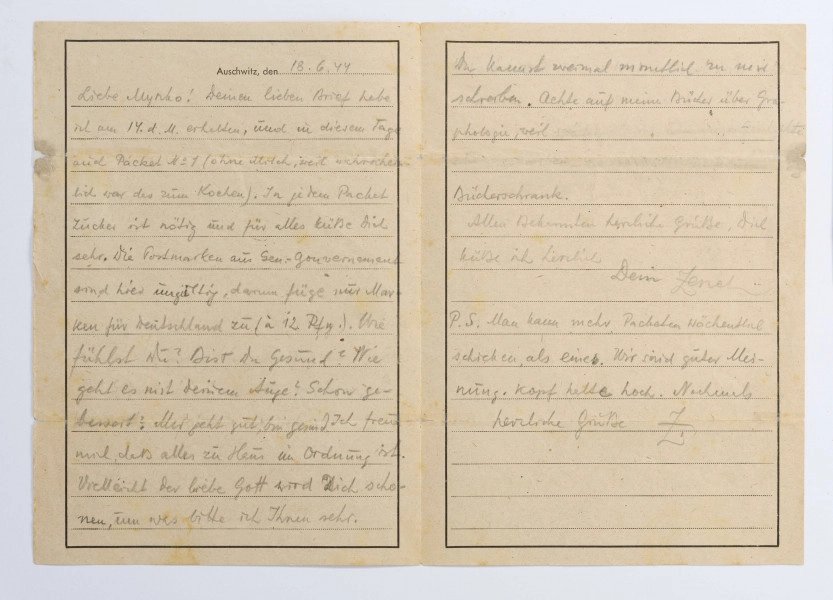 Auschwitz, den 18.6.44
Liebe Myszko! Deinen lieben Brief habe
ich am 14. d. M. erhalten, und in diesem Tage
auch Packet No 1 (ohne Milch, weil wahrschein-
lich war das zum Kochen). In jedem Packet
Zucker ist nötig und für alles küße Dich
sehr. Die Postmarken aus Gen-Gouvernement
sind hier ungiltig, darum füge nur Mar-
ken für Deutschland zu (à 12 Pfg.). Wie
fühlst Du? Bist Du Gesund? Wie
geht es mit deinem Auge? Schon ge-
bessert? Mir geht gut, bin gesund. Ich freue
mich, daß alles zu Haus im Ordnung ist.
Vielleicht der liebe Gott wird Dich scho-
nen, um was bitte ich Ihnen sehr.
Du kannst zweimal monatlich zu mir
schreiben. Achte auf meine Bücher über Gra-
phologie, weil
Bücherschrank.
Allen Bekannten herzliche Grüße, Dich
küße ich herzlich
Dein
P.S. Man kann mehr Packeten wöchentlich
schicken, als eines. Wir sind guter Mei-
nung. Kopf halte hoch. Nochmals
herzliche Grüße Z.